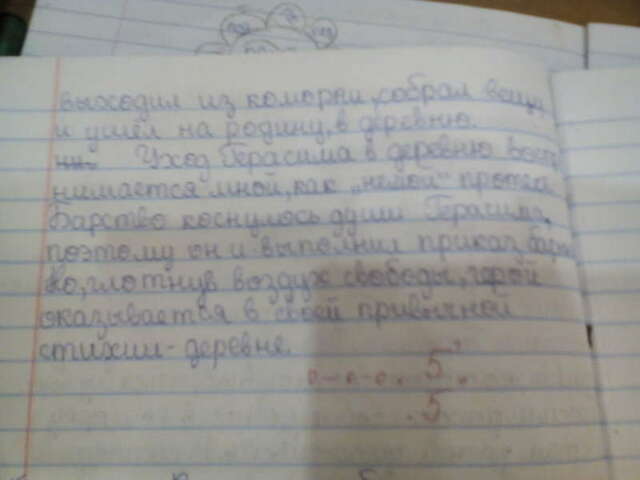 выходил из коморки, собрал вещи
и ушёл на родину, в деревню.
Уход Герасима в деревню восп
нимается мной, как „немой" протес
Барство коснулось души Герасима,
поэтому он и выполнил приказ бары
Но, глотнув воздух свободы, герой
оказывается в своей привычной
стихии - деревне.
0-0-0. 5
5